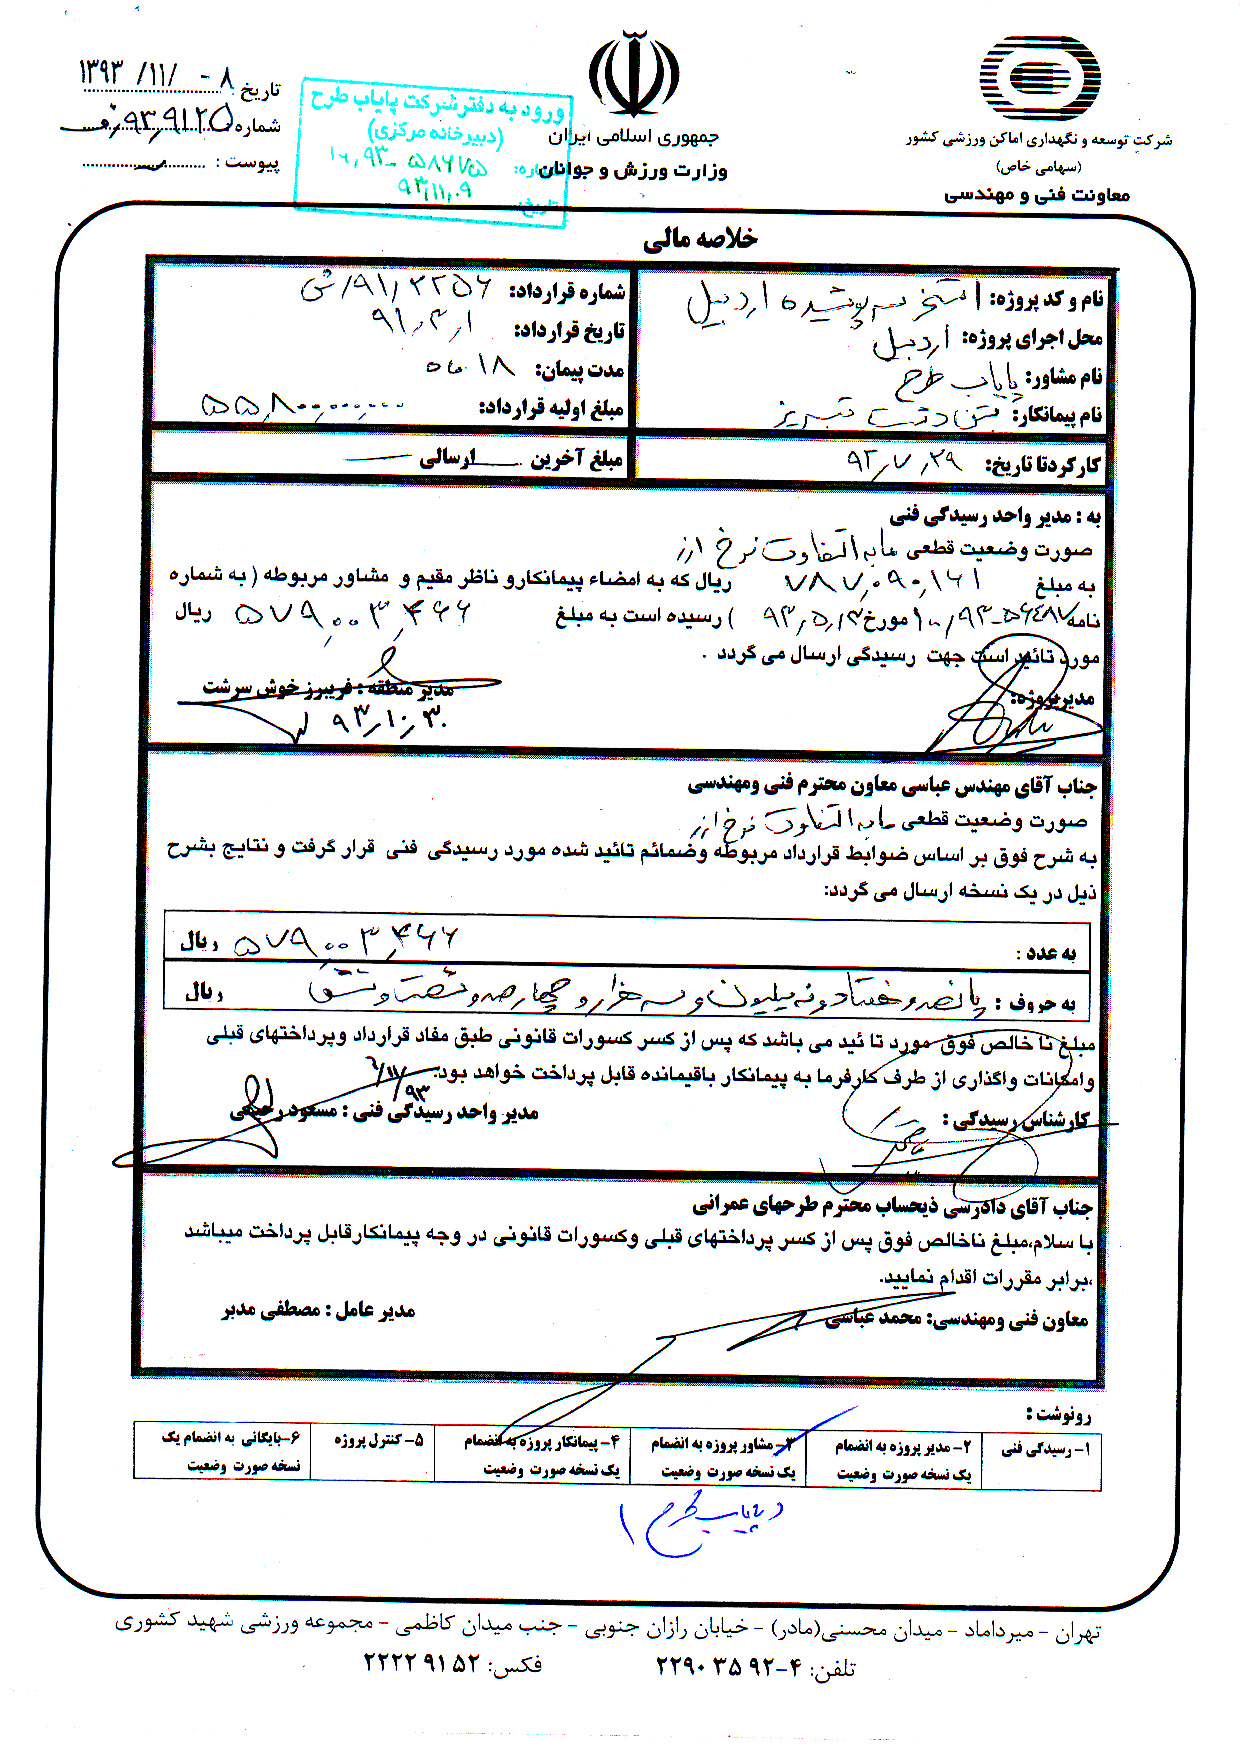 شرکت توسعه و نگهداری اماکن ورزشی کشور
(سهامی خاص)
معاونت فنی و مهندسی
جمهوری اسلامی ایران
وزارت ورزش و جوانان
تاریخ : ۱۳۹۳/۱۱/۰۸
شماره ۹۳٫۹۱۲۵
پیوست :
ورود به دفتر شرکت پایاب طرح
(دبیرخانه مرکزی)
شماره: ۱۰٫۹۳-۵۸۶۷۵
تاریخ: ۹۳٫۱۱٫۰۹
خلاصه مالی
نام و کد پروژه: استخر سرپوشیده اردبیل
محل اجرای پروژه: اردبیل
نام مشاور: پایاب طرح
نام پیمانکار: بتن دشت تبریز
شماره قرارداد: ۹۱٫۲۲۵۶/ش
تاریخ قرارداد: ۹۱٫۳٫۱
مدت پیمان: ۱۸ ماه
مبلغ اولیه قرارداد: ۵۵٫۸۰۰٫۰۰۰٫۰۰۰
کارکردتا تاریخ: ۹۲٫۷٫۲۹
مبلغ آخرین ــــ ارسالی ــــ
به : مدیر واحد رسیدگی فنی
صورت وضعیت قطعی مابه التفاوت نرخ ارز
به مبلغ ۷۸۷٫۰۹۰٫۱۶۱ ریال که به امضاء پیمانکارو ناظر مقیم و مشاور مربوطه ( به شماره
نامه ۱۰٫۹۳-۵۶۴۸۷ مورخ ۹۳٫۵٫۱۳ ) رسیده است به مبلغ ۵۷۹٫۰۰۳٫۴۶۶ ریال
مورد تائید است جهت رسیدگی ارسال می گردد .
مدیرپروژه:
مدیر منطقه : فریبرز خوش سرشت
۹۳٫۱۰٫۳۰
جناب آقای مهندس عباسی معاون محترم فنی ومهندسی
صورت وضعیت قطعی مابه التفاوت نرخ ارز
به شرح فوق بر اساس ضوابط قرارداد مربوطه وضمائم تائید شده مورد رسیدگی فنی قرار گرفت و نتایج بشرح
ذیل در یک نسخه ارسال می گردد:
به عدد : ۵۷۹٫۰۰۳٫۴۶۶ ریال
به حروف : پانصد و هفتاد و نه میلیون و سه هزار و چهارصد و شصت و شش ریال
مبلغ نا خالص فوق مورد تا ئید می باشد که پس از کسر کسورات قانونی طبق مفاد قرارداد وپرداختهای قبلی
وامکانات واگذاری از طرف کارفرما به پیمانکار باقیمانده قابل پرداخت خواهد بود.
کارشناس رسیدگی :
مدیر واحد رسیدگی فنی : مسعود رحیمی
جناب آقای دادرسی ذیحساب محترم طرحهای عمرانی
با سلام،مبلغ ناخالص فوق پس از کسر پرداختهای قبلی وکسورات قانونی در وجه پیمانکارقابل پرداخت میباشد
،برابر مقررات اقدام نمایید.
معاون فنی ومهندسی: محمد عباسی
مدیر عامل : مصطفی مدبر
رونوشت :
۱- رسیدگی فنی
۲- مدیر پروژه به انضمام
یک نسخه صورت وضعیت
۳- مشاور پروژه به انضمام
یک نسخه صورت وضعیت
۴- پیمانکار پروژه به انضمام
یک نسخه صورت وضعیت
۵- کنترل پروژه
۶-بایگانی به انضمام یک
نسخه صورت وضعیت
پایاب طرح
تهران - میرداماد - میدان محسنی(مادر) - خیابان رازان جنوبی - جنب میدان کاظمی - مجموعه ورزشی شهید کشوری
تلفن: ۴-۲۲۹۰۳۵۹۲ فکس: ۲۲۲۲۹۱۵۲